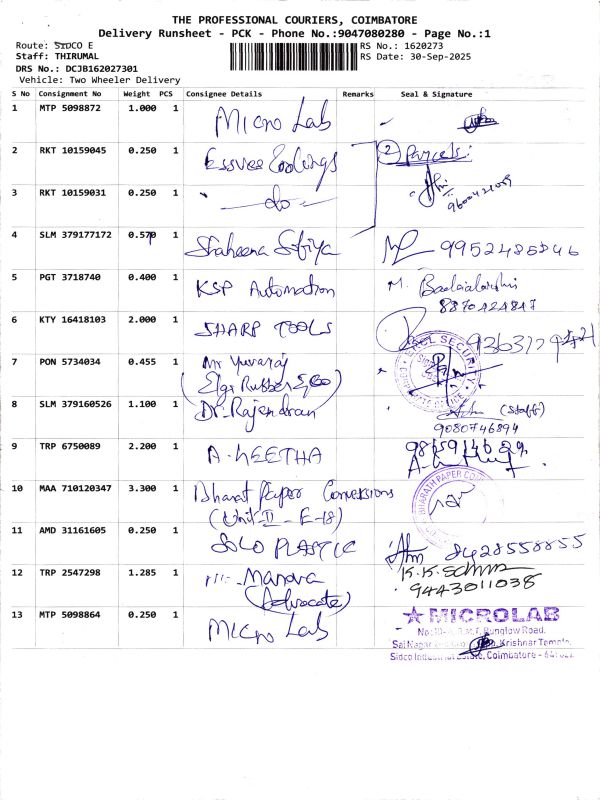 THE PROFESSIONAL COURIERS, COIMBATORE
Delivery Runsheet - PCK - Phone No.:9047080280 - Page No.:1
Route: SIDCO E
RS No.: 1620273
Staff: THIRUMAL
RS Date: 30-Sep-2025
DRS No.: DCJB162027301
Vehicle: Two Wheeler Delivery
S No Consignment No Weight PCS Consignee Details Remarks Seal & Signature
1 MTP 5098872 1.000 1 Micro Lab
2 RKT 10159045 0.250 1 Essvee Coolings (2) Parcels:
3 RKT 10159031 0.250 1 - do -
4 SLM 379177172 0.570 1 Shaheena Sofiya
5 PGT 3718740 0.400 1 KSP Automation M.
8870424847
6 KTY 16418103 2.000 1 SHARP TOOLS
7 PON 5734034 0.455 1 Mr Yuvaraj
(Elgi Rubber & Co)
SECURITY
8 SLM 379160526 1.100 1 Dr. Rajendran (Staff)
9080746894
9 TRP 6750089 2.200 1 A. GEETHA
10 MAA 710120347 3.300 1 Bharat Paper Conversions
(Unit-II - E-18)
BHARATH PAPER
11 AMD 31161605 0.250 1 SOLO PLASTIC 8428558855
12 TRP 2547298 1.285 1 Manova
(Advocate)
K.K.
9443011038
13 MTP 5098864 0.250 1 Micro Lab
★ MICROLAB
Bunglow Road,
Sai Nagar Krishnar Temple,
Sidco Industrial Estate, Coimbatore -